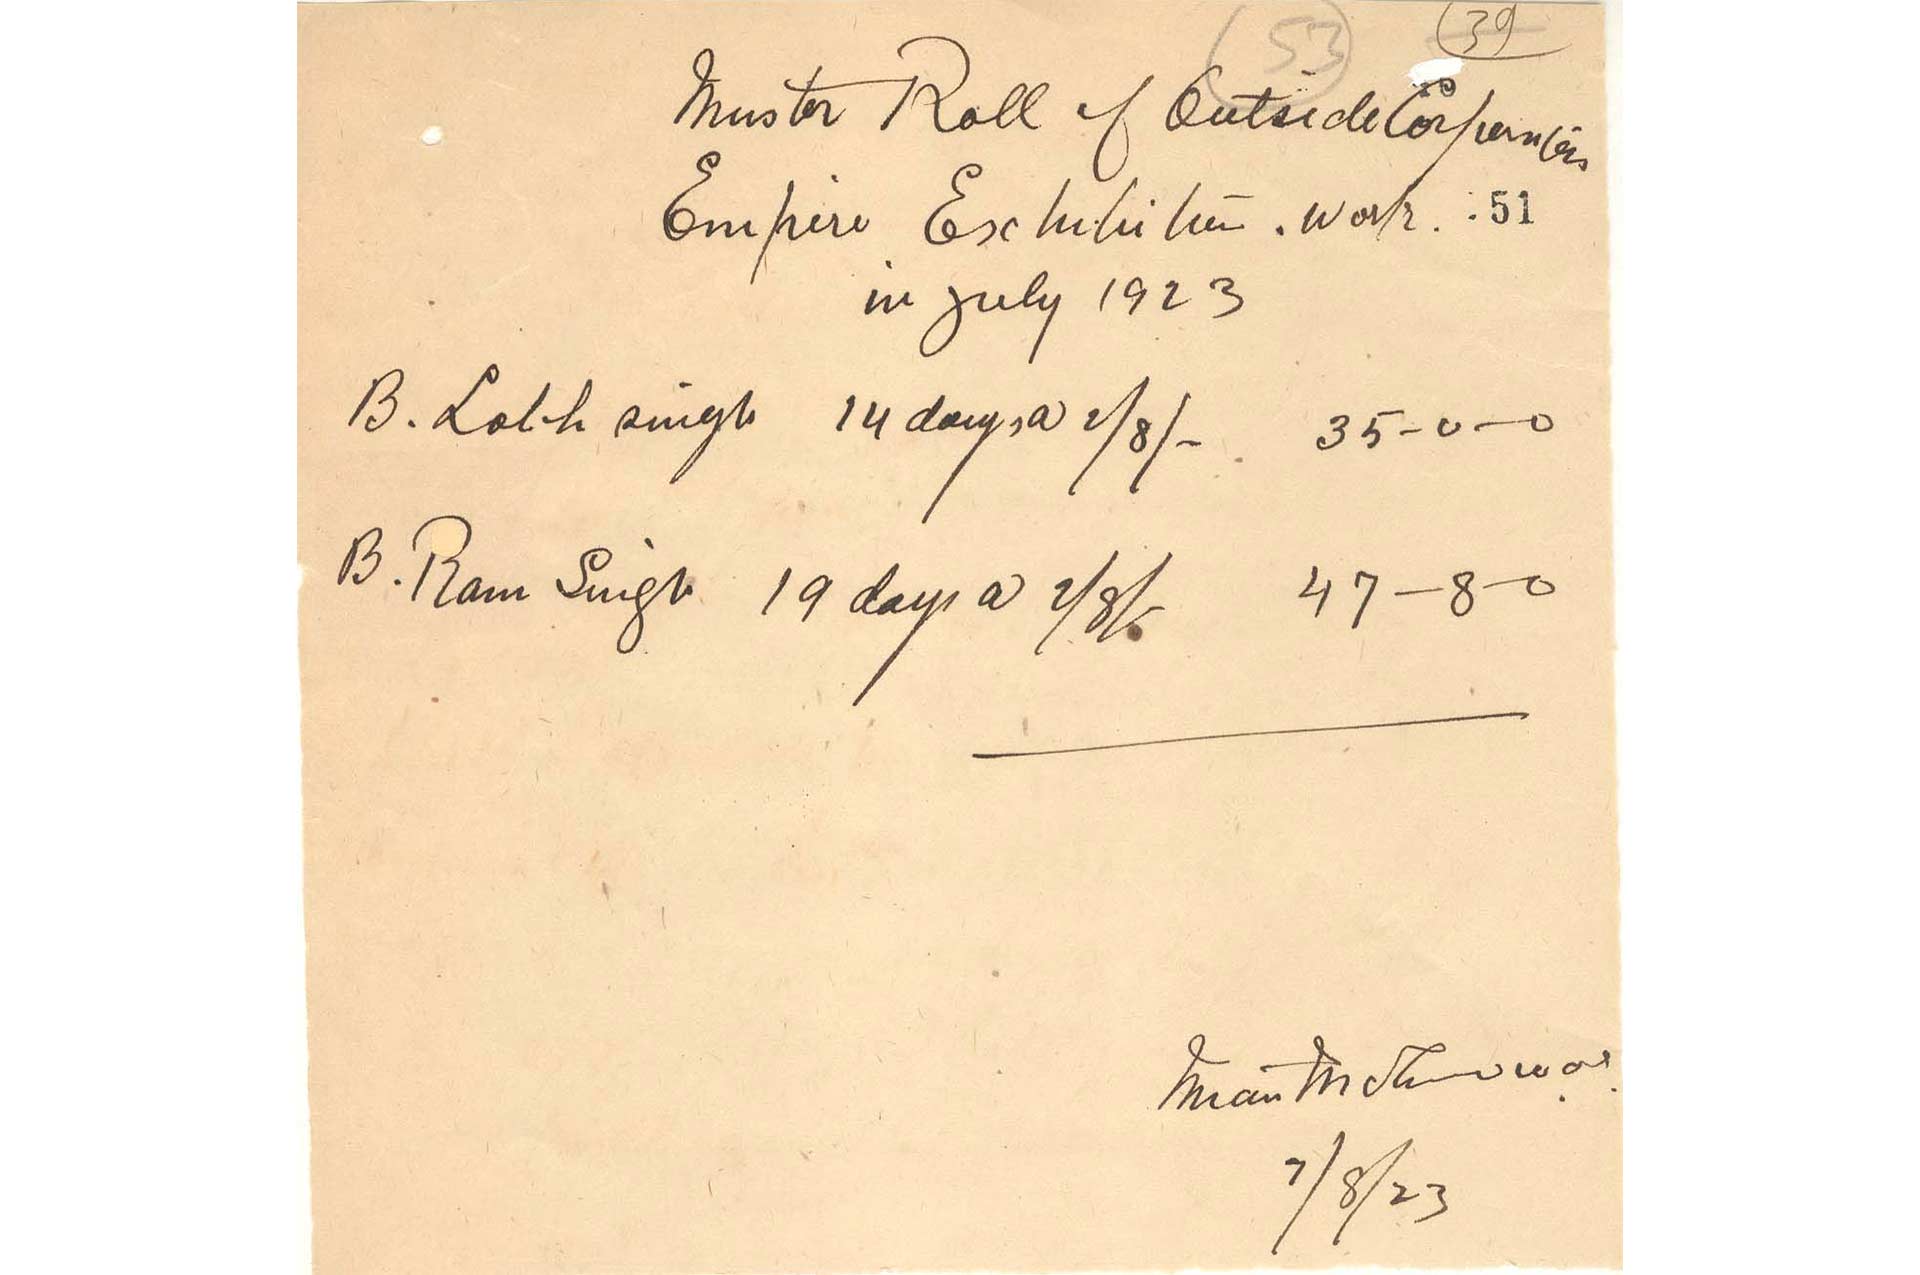 53 39
Muster Roll of Outside Carpenters
Empire Exhibition . work . 51
in July 1923
B. Labh singh 14 days @ 2/8/- 35-0-0
B. Ram Singh 19 days @ 2/8/- 47-8-0
Mian
7/8/23